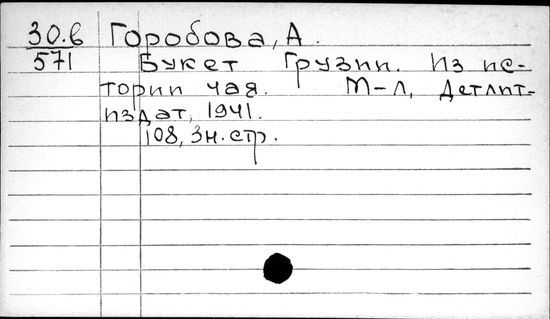 30.6 Горобова, А.
571 Букет Грузии. Из ис-
тории чая. М-Л, Детлит-
издат, 1941.
108, 3н. стр.